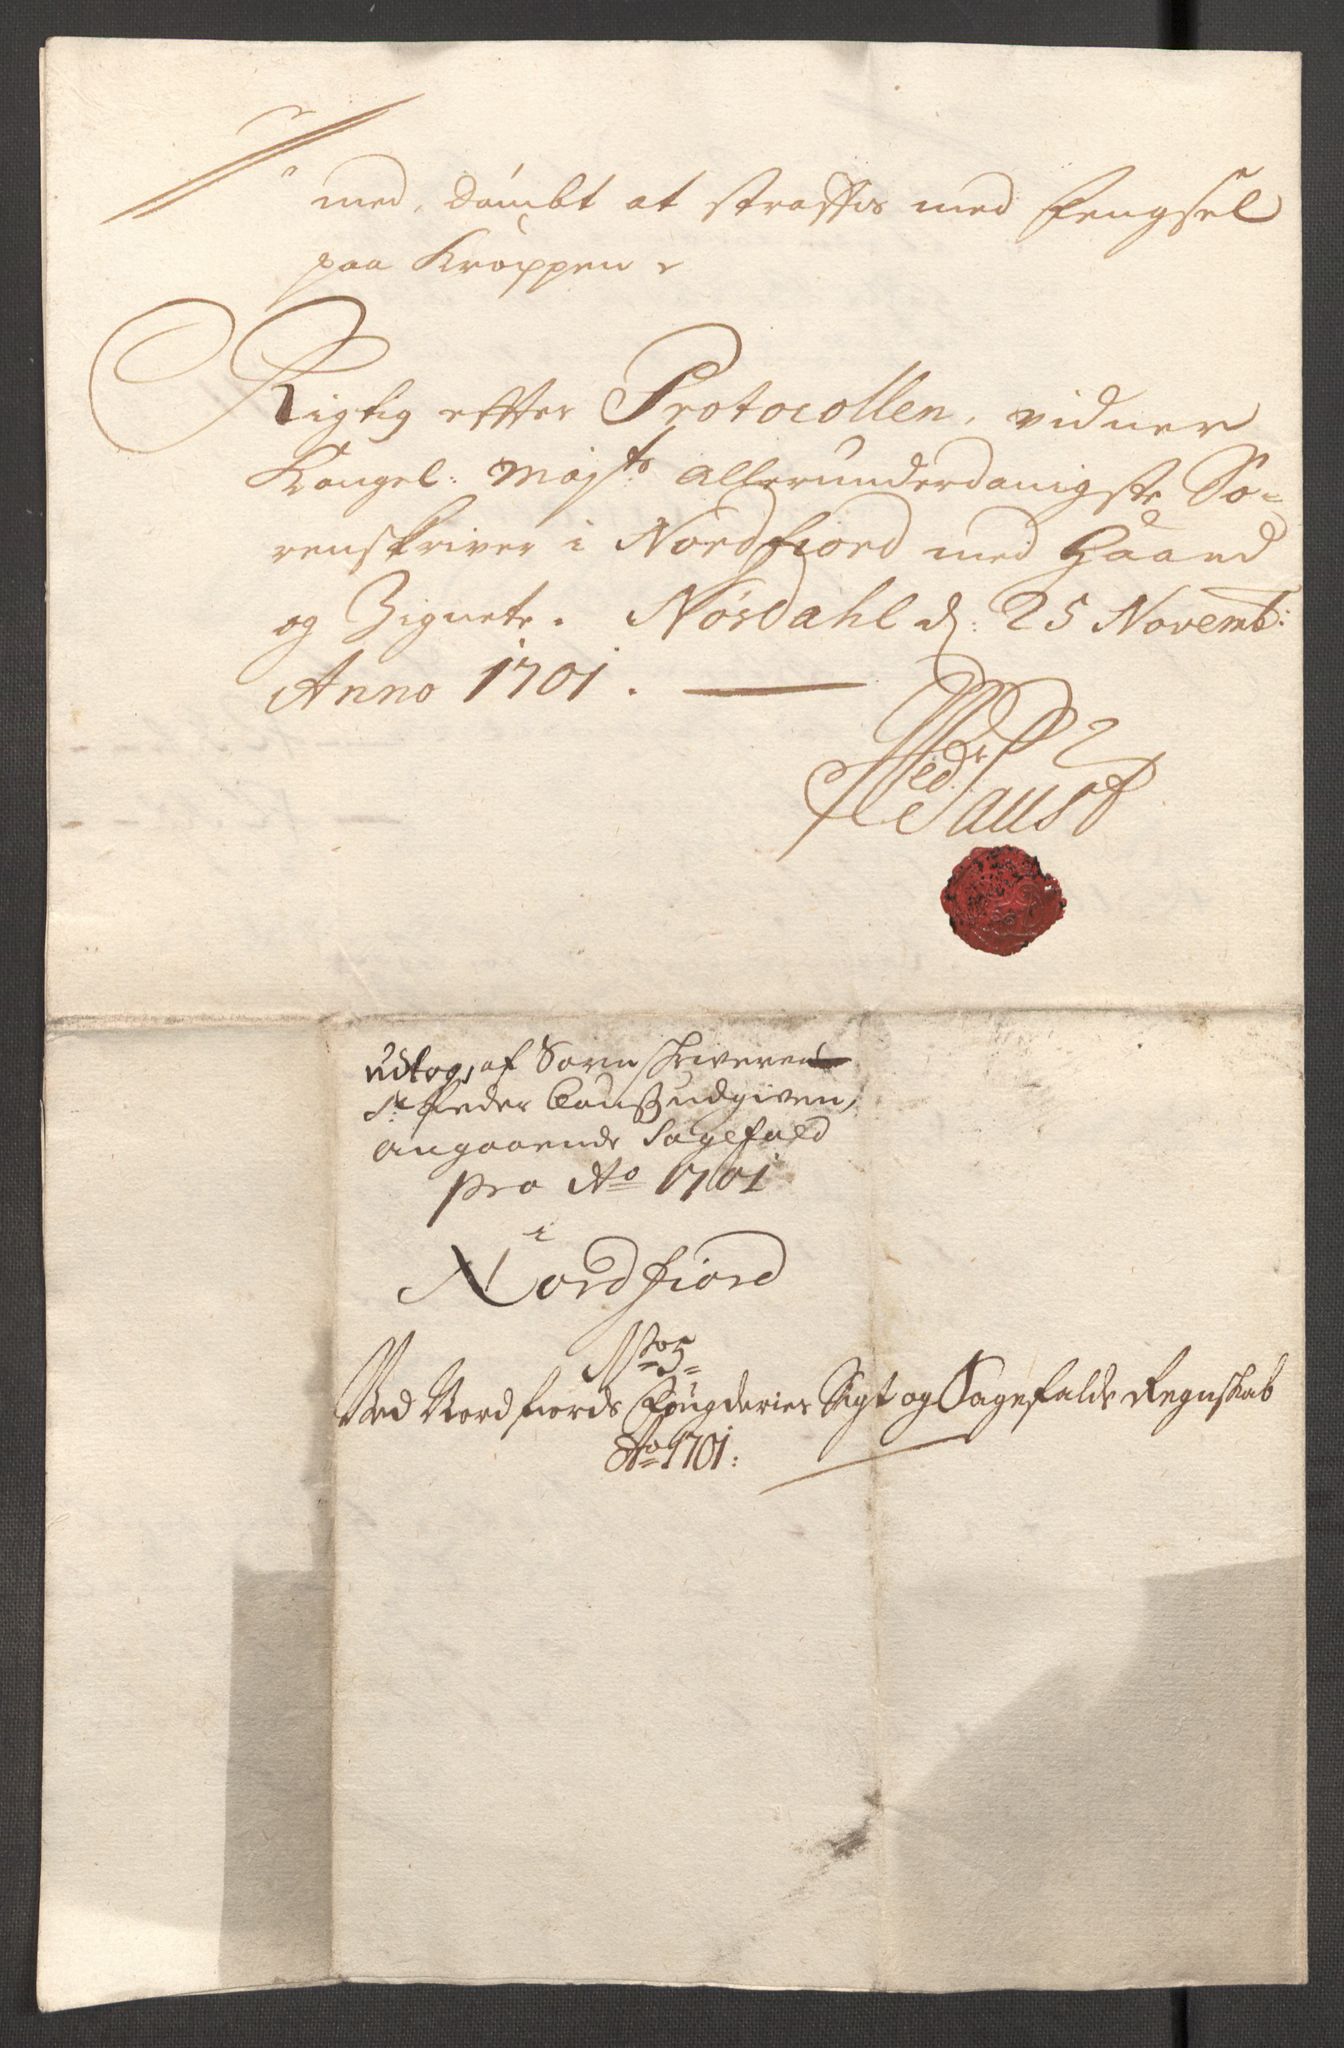 med, dømbt at straffis med fengsel
paa Kroppen.
Rigtig effter Protocollen, vidner
Kongel: Mayts allerunderdanigste So-
renskriver i Nordfiord med Haand
og Zignete. Nosdahl d: 25 Novemb:
Anno 1701.
Pedr Faust
udtog, af Sorenskriveren
Sr Peder Faust udgiven,
angaaende Sagefald
pro Ao 1701
i
Nordfiord
No 5
Ved Nordfiords Fougderies Sigt og Sagefalds Regnskab
Ao 1701: